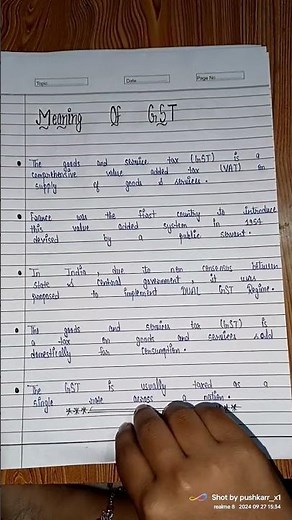 Topic
Date
Page No.
Meaning Of GST
The goods and service tax (GST) is a
comprehensive value added tax (VAT) on
supply of goods & services.
France was the first country to introduce
this value added system in 1954
devised by a public servant.
In India, due to non consensus between
state & central government, it was
proposed to implement DUAL GST Regime.
The goods and services tax (GST) is
a tax on goods and services sold
domestically for consumption.
The GST is usually taxed as a
single rate across a nation.
Shot by pushkarr_x1
realme 8 2024 09 27 15:54